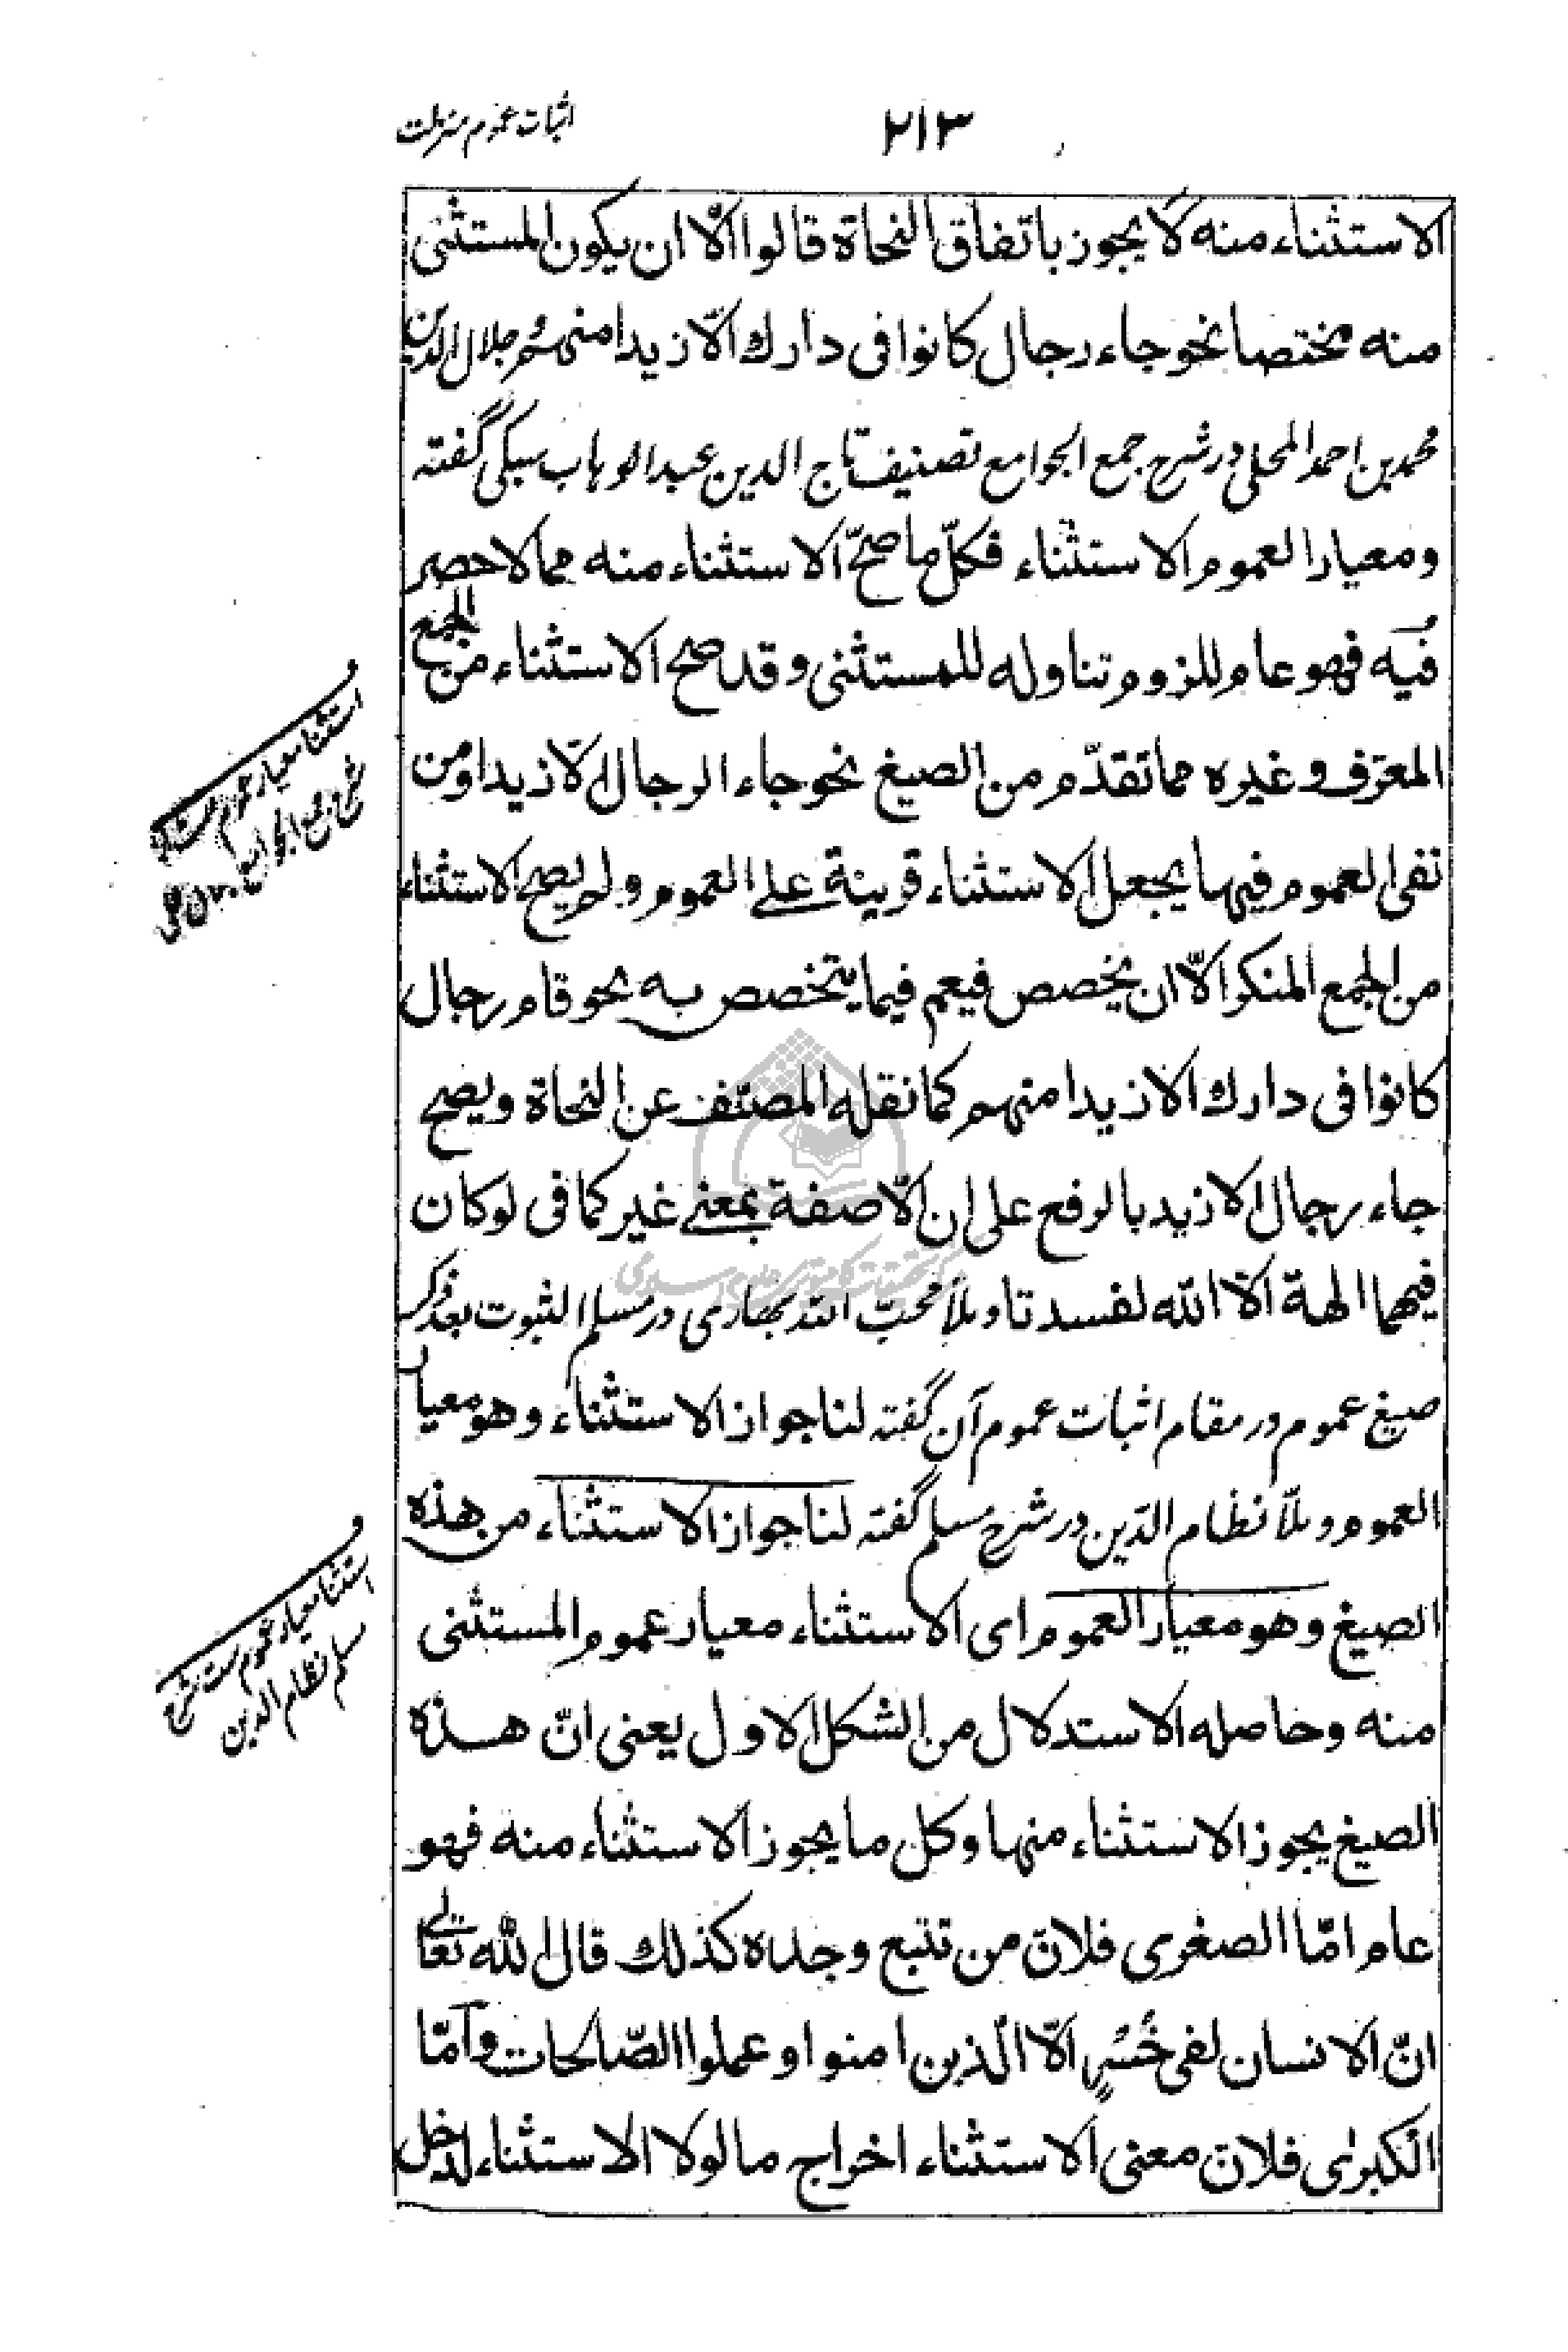 ۲۱۳
اثبات عموم منزلت
الاستثناء منه لا يجوز باتفاق النحاة قالوا الّا ان يكون المستثنى
منه مختصا نحو جاء رجال كانوا فى دارك الّا زيدا منهم و جلال الدين
محمد بن احمد المحلى در شرح جمع الجوامع تصنيف تاج الدين عبد الوهاب سبكى گفته
ومعيار العموم الاستثناء فكلّ ما صحّ الاستثناء منه مما لا حصر
فيه فهو عام للزوم تناوله للمستثنى وقد صح الاستثناء من الجمع
المعرّف وغيره مما تقدّم من الصيغ نحو جاء الرجال الّا زيدا ومن
نفى العموم فيها يجعل الاستثناء قرينة على العموم ولم يصح الاستثناء
من الجمع المنكر الّا ان يخصص فيعم فيما يتخصص به نحو قام رجال
كانوا فى دارك الا زيدا منهم كما نقله المصنّف عن النحاة ويصح
جاء رجال الا زيد بالرفع على ان الّا صفة بمعنى غير كما فى لو كان
فيهما الهة الّا الله لفسدتا و ملّا محبّ الله بهارى در مسلم الثبوت بعد ذكر
صيغ عموم در مقام اثبات عموم آن گفته لنا جواز الاستثناء وهو معيار
العموم و ملّا نظام الدّين در شرح مسلم گفته لنا جواز الاستثناء من هذه
الصيغ وهو معيار العموم اى الاستثناء معيار عموم المستثنى
منه وحاصله الاستدلال من الشكل الاول يعنى انّ هذه
الصيغ يجوز الاستثناء منها وكل ما يجوز الاستثناء منه فهو
عام امّا الصغرى فلانّ من تتبع وجده كذلك قال الله تعالى
انّ الانسان لفى خُسْرٍ الّا الّذين امنوا وعملوا الصّالحات وامّا
الكبرى فلانّ معنى الاستثناء اخراج ما لولا الاستثناء لدخل
و
استثنا معيار عموم ست
و
استثنا معيار عموم ست شرح
مسلم نظام الدين